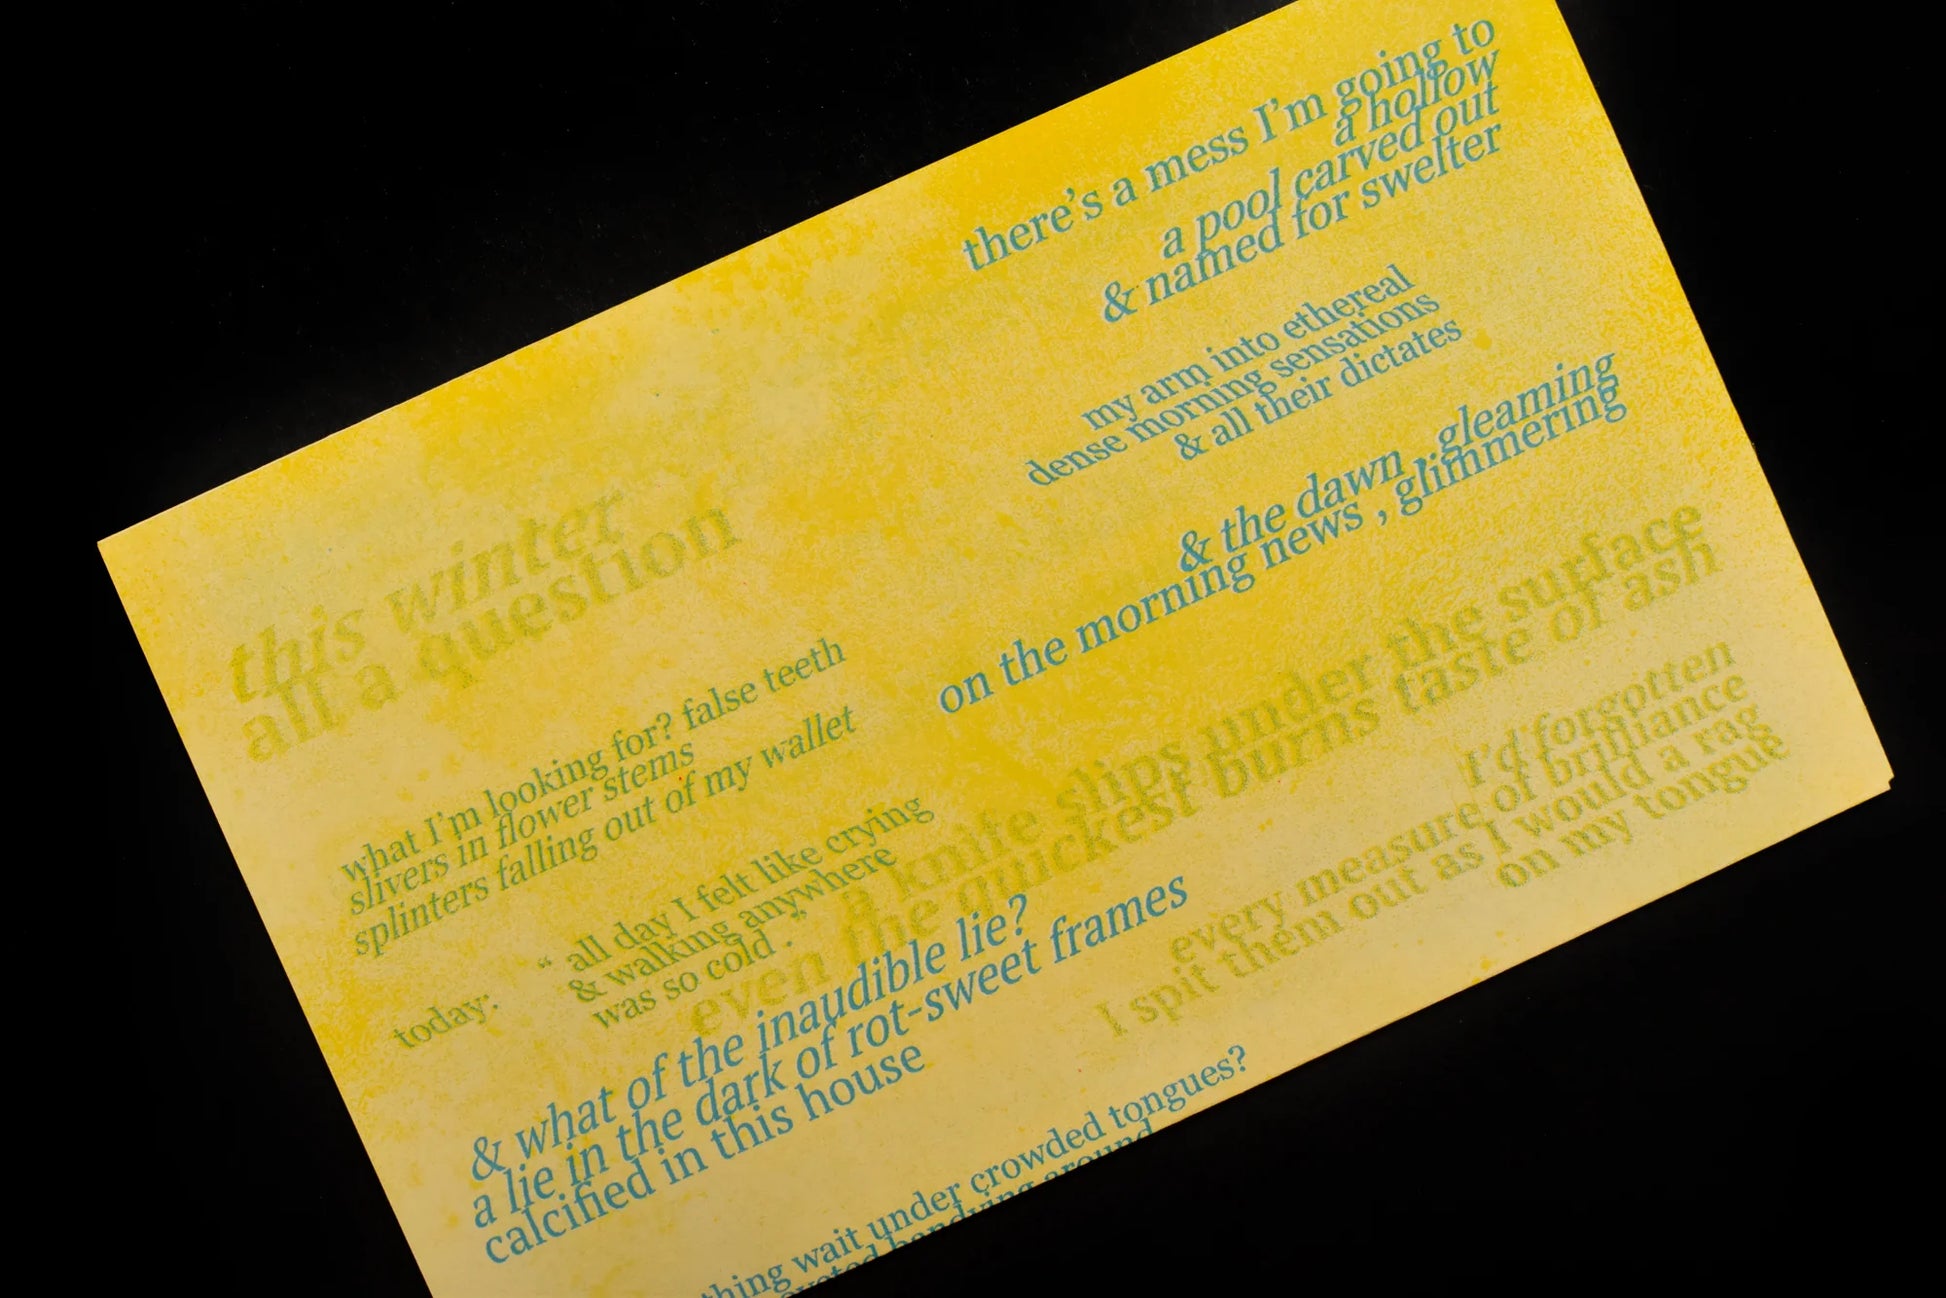 there's a mess I'm going to
a hollow
a pool carved out
& named for swelter
my arm into ethereal
dense morning sensations
& all their dictates
& the dawn , gleaming
on the morning news , glimmering
this winter
all a question
what I'm looking for? false teeth
slivers in flower stems
splinters falling out of my wallet
today: “ all day I felt like crying
& walking anywhere
was so cold .
a knife slips under the surface
even the quickest burns taste of ash
I'd forgotten
every measure of brilliance
I spit them out as I would a rag
on my tongue
& what of the inaudible lie?
a lie in the dark of rot-sweet frames
calcified in this house
thing wait under crowded tongues?
bandying around